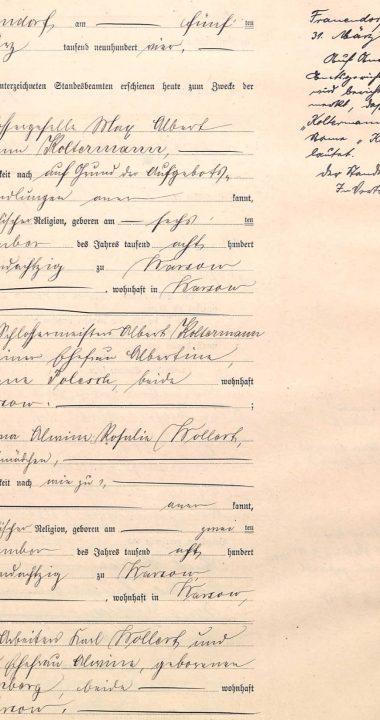 endorf am fünf ten
rz tausend neunhundert vier.
nterzeichneten Standesbeamten erschienen heute zum Zwecke der
ssergeselle Max Albert
ann Koltermann,
keit nach auf Grund der Aufgebots-
dlungen aner kannt,
ischer Religion, geboren am sechs ten
mber des Jahres tausend acht hundert
ndachtzig zu Warsow
, wohnhaft in Warsow
Schlossermeisters Albert Koltermann
einer Ehefrau Albertine,
ne beide wohnhaft
sow. ;
na Alwine Rosalie Wollert,
mädchen,
keit nach wie zu 1,
aner kannt,
ischer Religion, geboren am zwei ten
mber des Jahres tausend acht hundert
ndachtzig zu Warsow
, wohnhaft in Warsow,
Arbeiters Karl Wollert und
Ehefrau Alwine, geborenen
nberg, beide wohnhaft
sow.
Frauendor
31. März
Auf An
Amtsgeric
wird bericht
merkt, das
"Koltermann
Name "K
lautet.
Der Stande
In Vertr